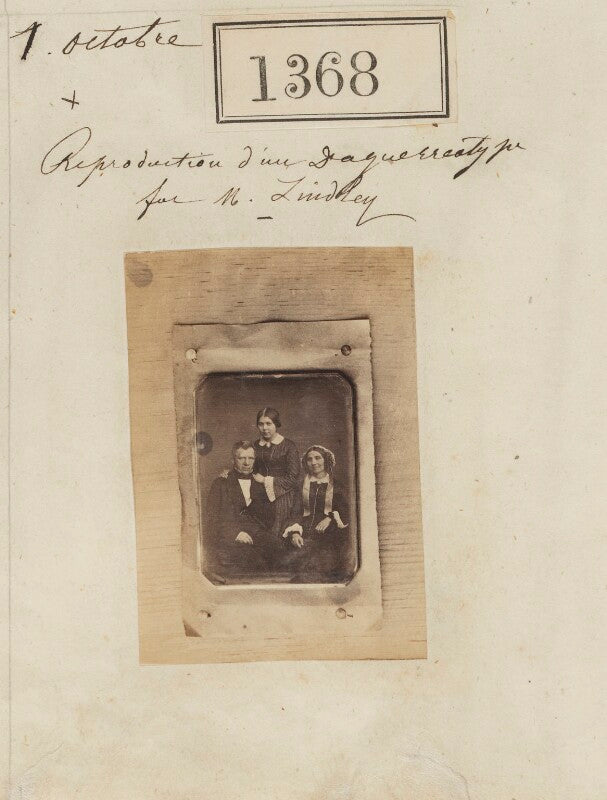 1. octobre
1368
Reproduction d'un Daguerreotype
for M. Lindley